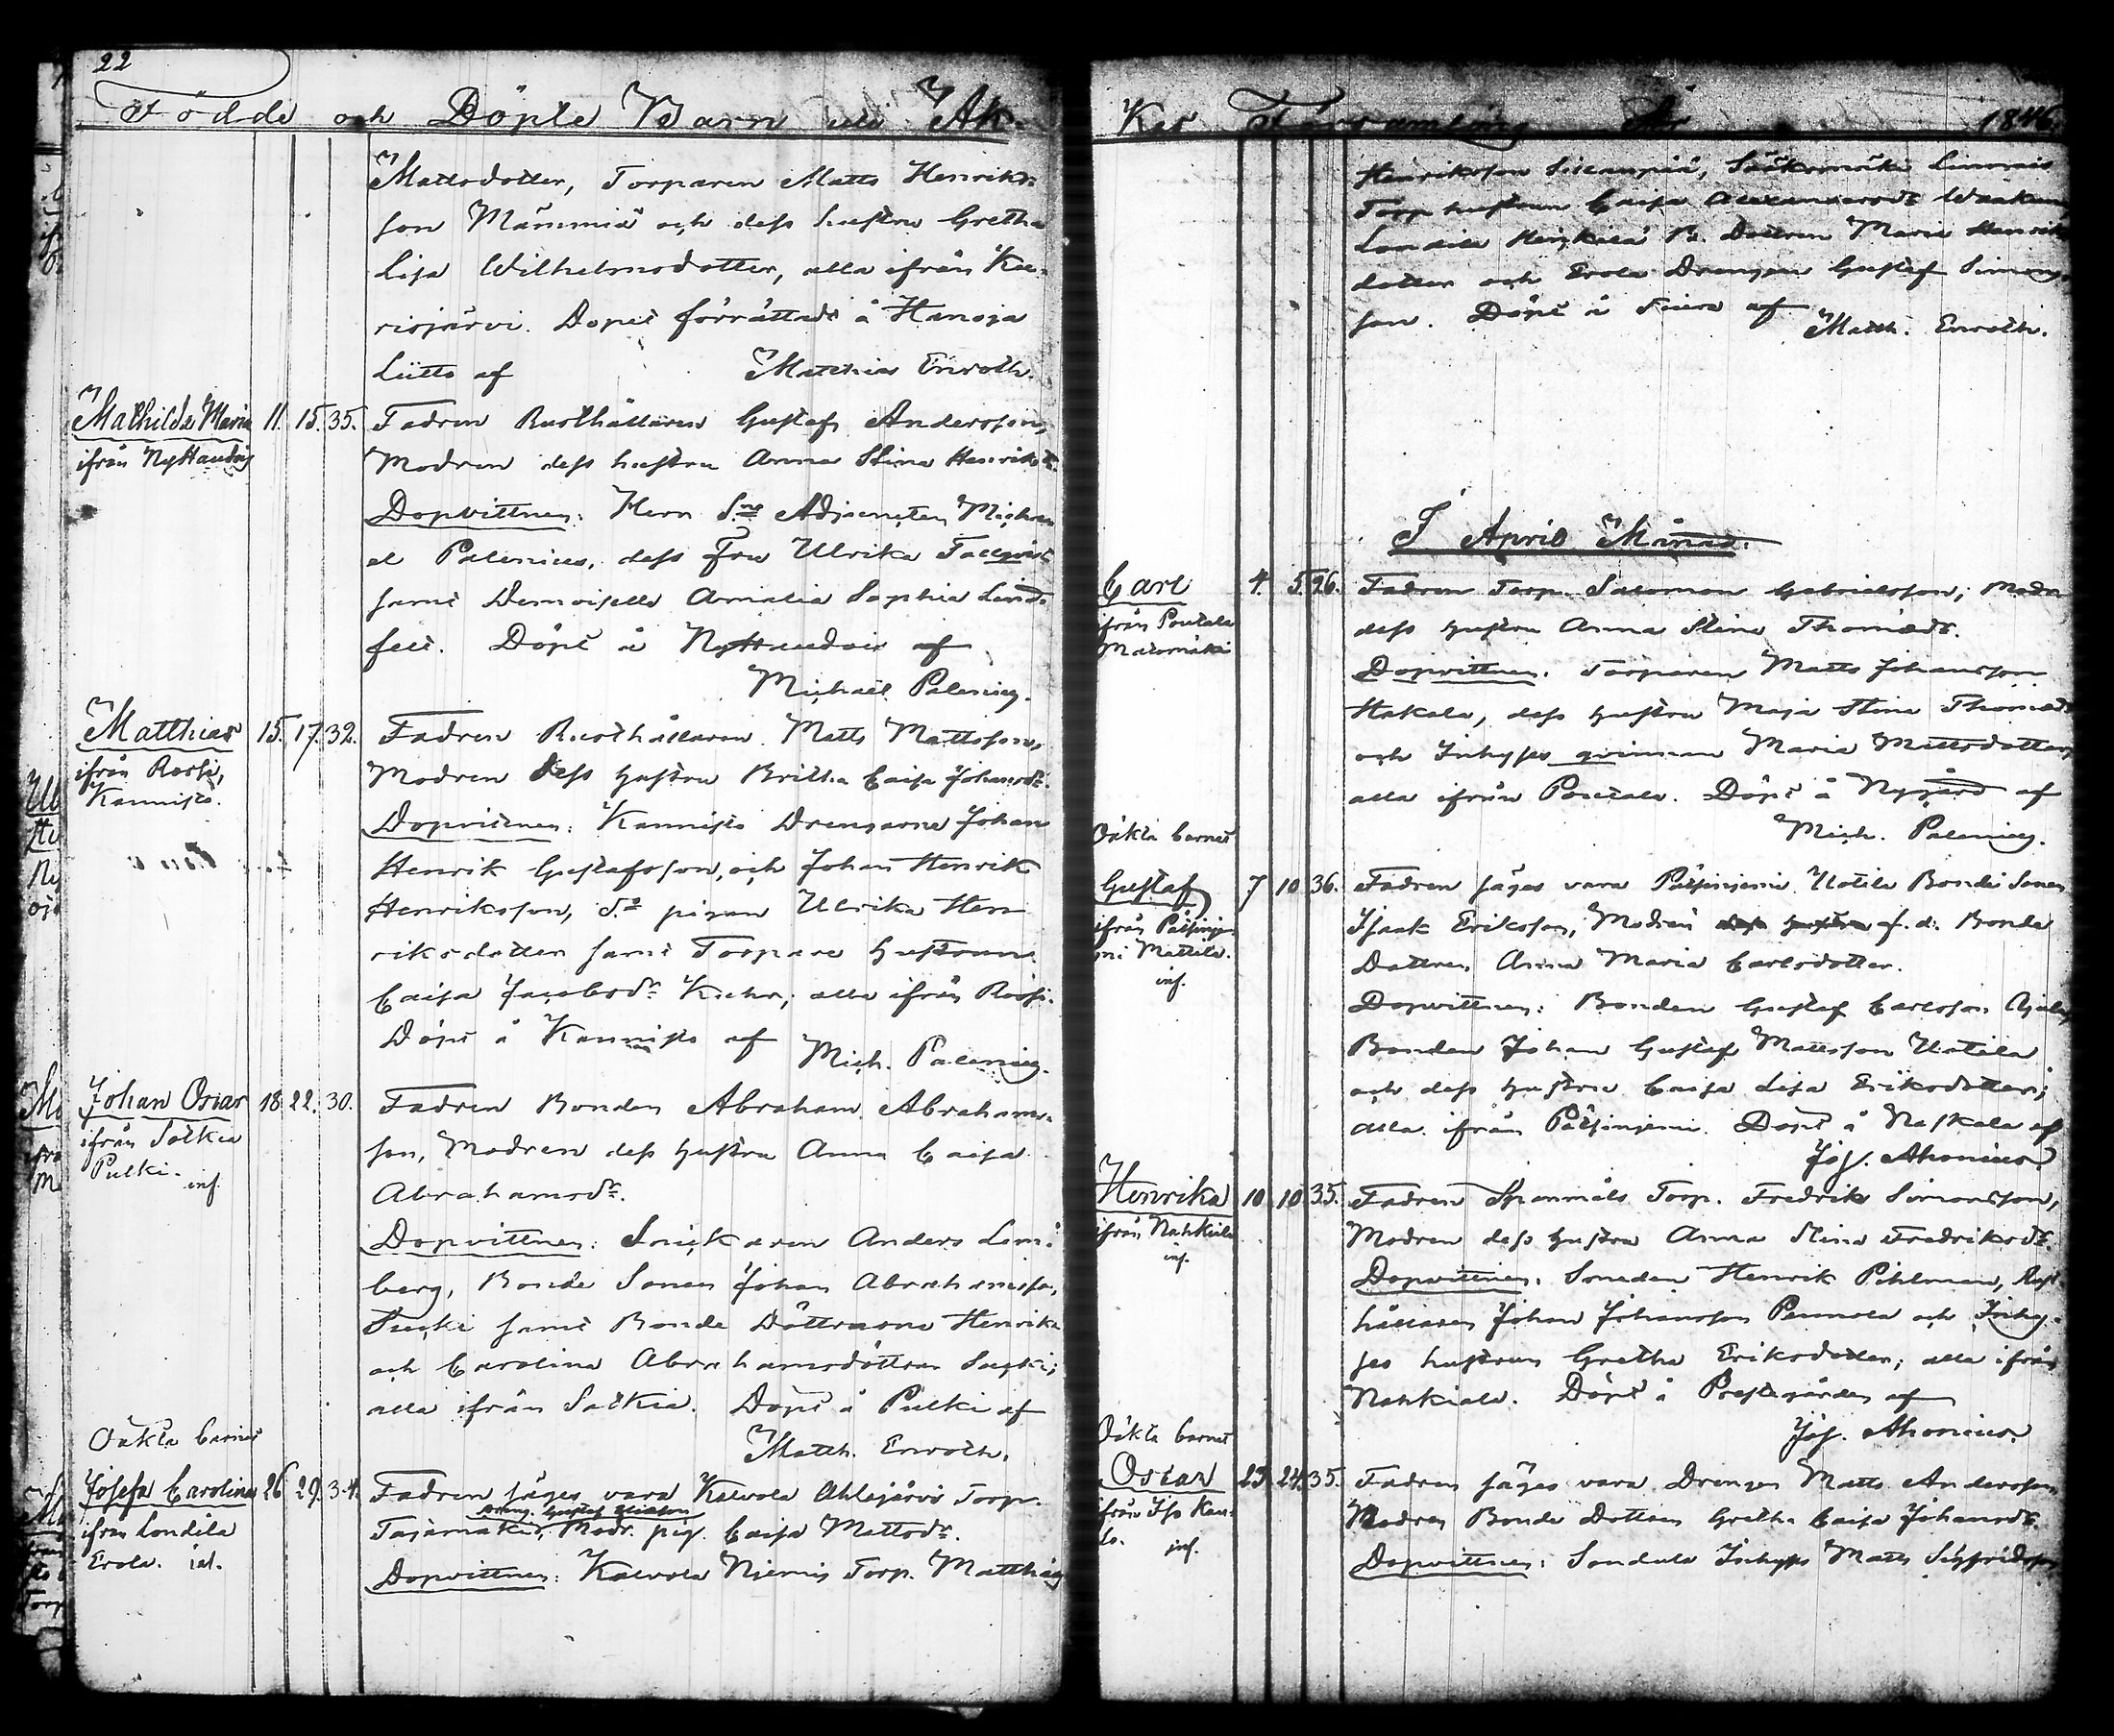 22
Födde och Döpte Barn uti Ak-
Mattsdotter, Torparen Matts Henriks-
son Mämmiä och dess hustru Gretha
Lisa Wilhelmsdotter, alla ifrån Ka-
risjärvi. Dopet förrättadt å Hanoja
Lutts af Matthias Enroth.
Mathilda Maria 11. 15. 35. Fadren Rusthållaren Gustaf Andersson,
ifrån Nyttaudois Modren dess hustru Anna Stina Henriksdr.
Dopvittnen: Herr S:ne Adjuncten Micha-
el Palenius, dess Fru Ulrika Tallqvist
samt Demoiselle Amalia Sophia Lind-
felt. Döpt å Nyttaudois af
Michaël Palenius.
Matthias 15. 17. 32. Fadren Rusthållaren Matts Mattsson,
ifrån Modren dess hustru Britha Caisa Johansdr.
Kannisto. Dopvittnen: Kannisto Drengarne Johan
Henrik Gustafsson, och Johan Henrik
Henriksson, d:o pigan Ulrika Hen-
riksdotter samt Torpare hustrun
Caisa Jacobsdr. alla ifrån
Döpt å Kannisto af Mich. Palenius.
Johan Oscar 18. 22. 30. Fadren Bonden Abraham Abrahams-
ifrån Satkia son, Modren dess hustru Anna Caisa
Pulki. inf. Abrahamsdr.
Dopvittnen: Snickaren Anders Lem-
berg, Bonde Sonen Johan Abrahamsson,
samt Bonde Döttrarne Henrika
och Carolina Abrahamsdöttrar
alla ifrån Satkia. Döpt å Pulki af
Matth. Enroth.
Oäkta barnet
Josefa Carolina 26. 29. 34. Fadren säges vara Kalvola Ahlajärvi Torp.
Dreng. Gustaf
ifrån Londila Tajamäki, Modr. pig. Caisa Mattsdr.
Erola. Dopvittnen: Kalvola Niemis Torp. Matthias
Kas Församling År 1846.
Henriksson
Torp hustrun Caisa
Londila Heikkilä B. Dottren Maria Henriks-
dotter och Erola Drengen Gustaf Simons-
son. Döpt å af Matth. Enroth.
I April Månad.
Carl 4. 5. 26. Fadren Torp. Salomon Gabrielsson, Modr.
ifrån Pontala dess hustru Anna Stina Thomædr.
Dopvittnen. Torparen Matts Johansson
Hakala, dess hustru Maja Stina Thomædr
och Inhyses qvinnan Maria Mattsdotter,
alla ifrån Pontala. Döpt å Nygård af
Mich. Palenius.
Oäkta barnet
Gustaf 7 10 36. Fadren säges vara Pälsinjemi Uotila Bonde Sonen
ifrån Pälsinje- Isaak Eriksson, Modren dess hustru af. d. Bonde
mi Mattila. Dottren Anna Maria Carlsdotter.
inf. Dopvittnen: Bonden Gustaf Carlsson
Bonden Johan Gustaf Mattsson Uotila
och dess hustru Caisa Lisa Eriksdotter;
alla ifrån Pälsinjemi. Döpt å Naskala af
Jos. Ahonius.
Henrika 10. 10 35. Fadren Spannmåls Torp. Fredrik Simonsson,
ifrån Nahkiala Modren dess hustru Anna Stina Fredriksdr.
inf. Dopvittnen. Smeden Henrik Pihlman, Rust-
hållaren Johan Johansson Pennola och Inhy-
ses hustrun Gretha Eriksdotter; alla ifrån
Nahkiala. Döpt å Prestegården af
Jos. Ahonius.
Oäkta barnet
Oscar 23. 24. 35. Fadren säges vara Drengen Matts Andersson
ifrån Modren Bonde Dottren Gretha Caisa Johansdr.
inf. Dopvittnen: Inhyses Matts Sigfridsson